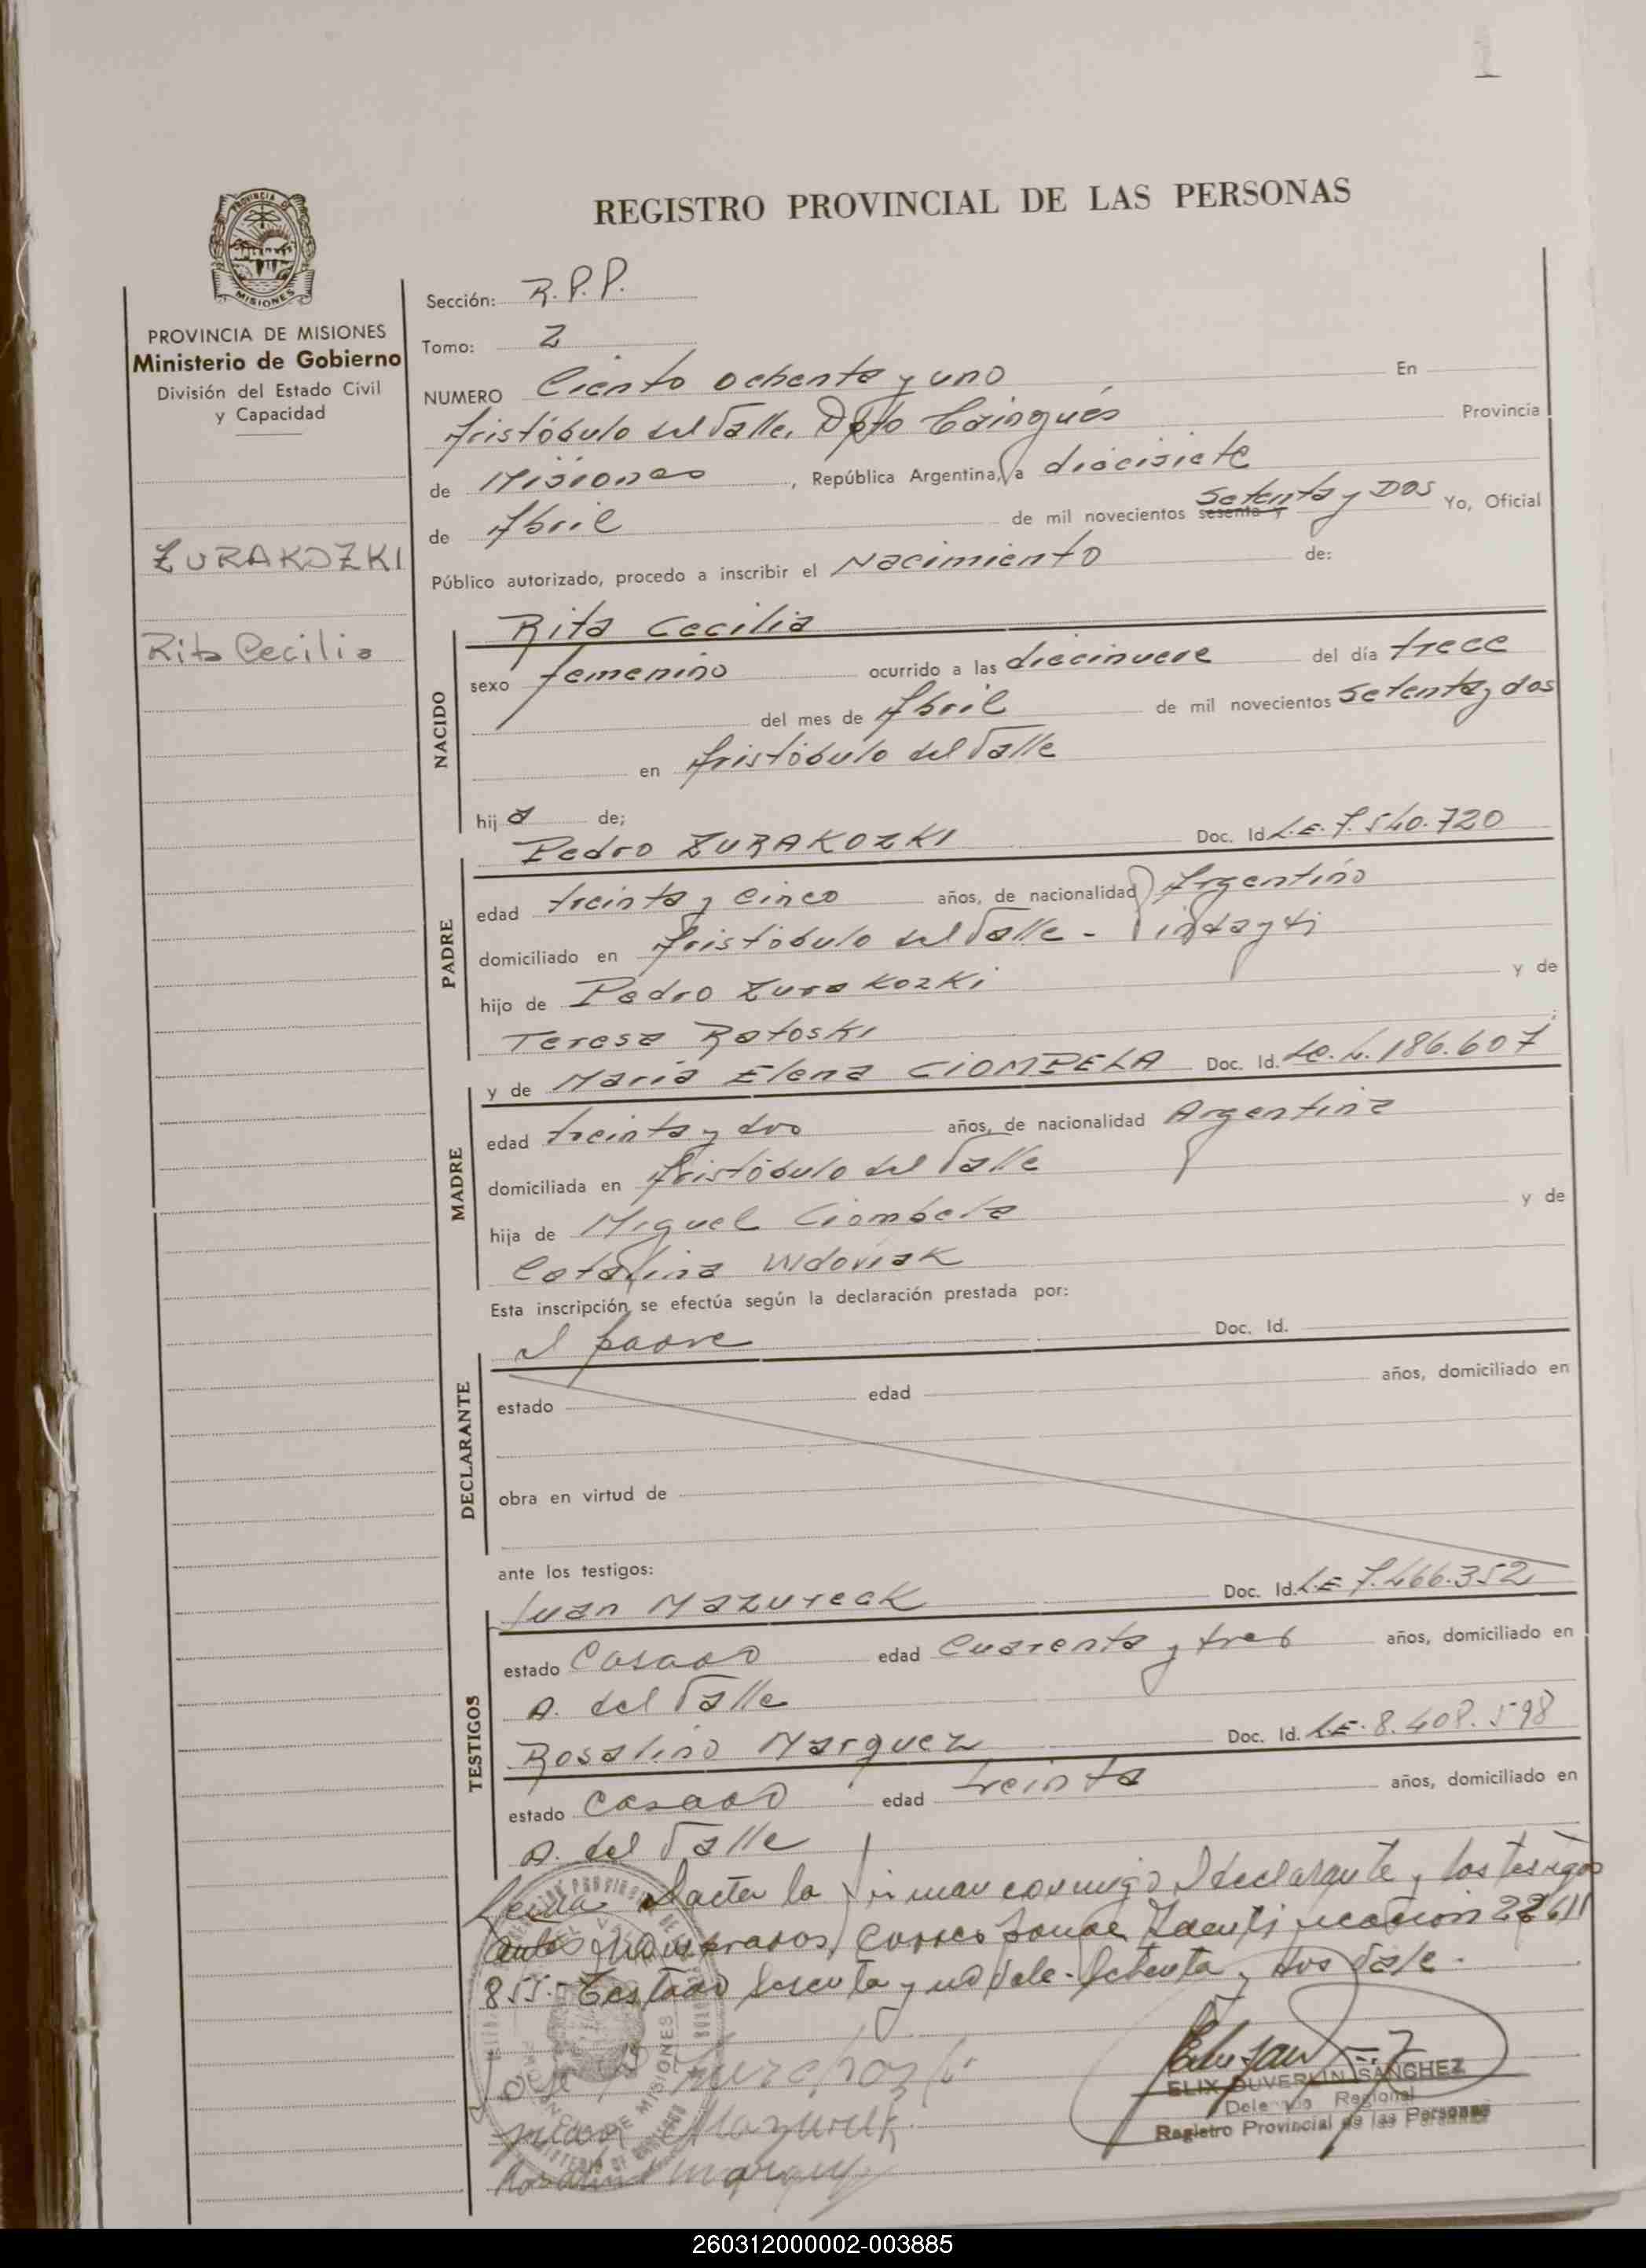 1
REGISTRO PROVINCIAL DE LAS PERSONAS
PROVINCIA DE MISIONES
Ministerio de Gobierno
División del Estado Civil
y Capacidad
ZURAKOZKI
Rita Cecilia
Sección: R.P.P.
Tomo: 2
NUMERO Ciento ochenta y uno En
Aristóbulo del Valle, Dpto Cainguás Provincia
de Misiones, República Argentina, a diecisiete
de Abril de mil novecientos sesenta y Setenta y Dos Yo, Oficial
Público autorizado, procedo a inscribir el Nacimiento de:
NACIDO
Rita Cecilia
sexo femenino ocurrido a las diecinueve del día trece
del mes de Abril de mil novecientos Setenta y dos
en Aristóbulo del Valle
hij a de;
PADRE
Pedro ZURAKOZKI Doc. Id. L.E. 7.540.720
edad treinta y cinco años, de nacionalidad Argentino
domiciliado en Aristóbulo del Valle - Pindayti
hijo de Pedro Zurakozki y de
Teresa Ratoski
MADRE
y de María Elena CIOMPELA Doc. Id. LC. 4.186.607
edad treinta y dos años, de nacionalidad Argentina
domiciliada en Aristóbulo del Valle
hija de Miguel Ciombela y de
Catalina Wdoviak
Esta inscripción se efectúa según la declaración prestada por:
DECLARANTE
el padre Doc. Id.
estado edad años, domiciliado en
obra en virtud de
ante los testigos:
TESTIGOS
Juan Mazureak Doc. Id. L.E 7.466.352
estado Casado edad Cuarenta y tres años, domiciliado en
A. del Valle
Rosalino Marquez Doc. Id. L.E. 8.408.598
estado Casado edad treinta años, domiciliado en
A. del Valle
Leída el acta la firman conmigo el declarante y los testigos
antes nombrados, corresponde Identificación 22611
855.- Testado sesenta y no vale. Setenta y dos vale.-
Zurakozki
Juan Mazurek
Rosalino Marquez
ELIX DUVERLIN SANCHEZ
Delegado Regional
Registro Provincial de las Personas
260312000002-003885